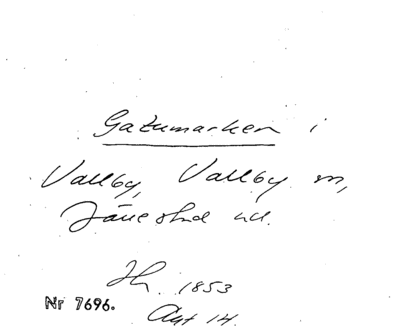 Gatumarken i
Vallby, Vallby sn,
Järrestad hd.
1853
Nr 7696.
Akt 14.